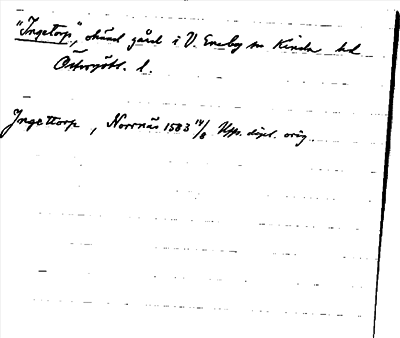 "Ingetorp", okänd gård i V. Eneby sn Kinda hd
Östergötl. l.
Ingettorp, Norrnäs 1583 14/8 Upps. dipl. orig.